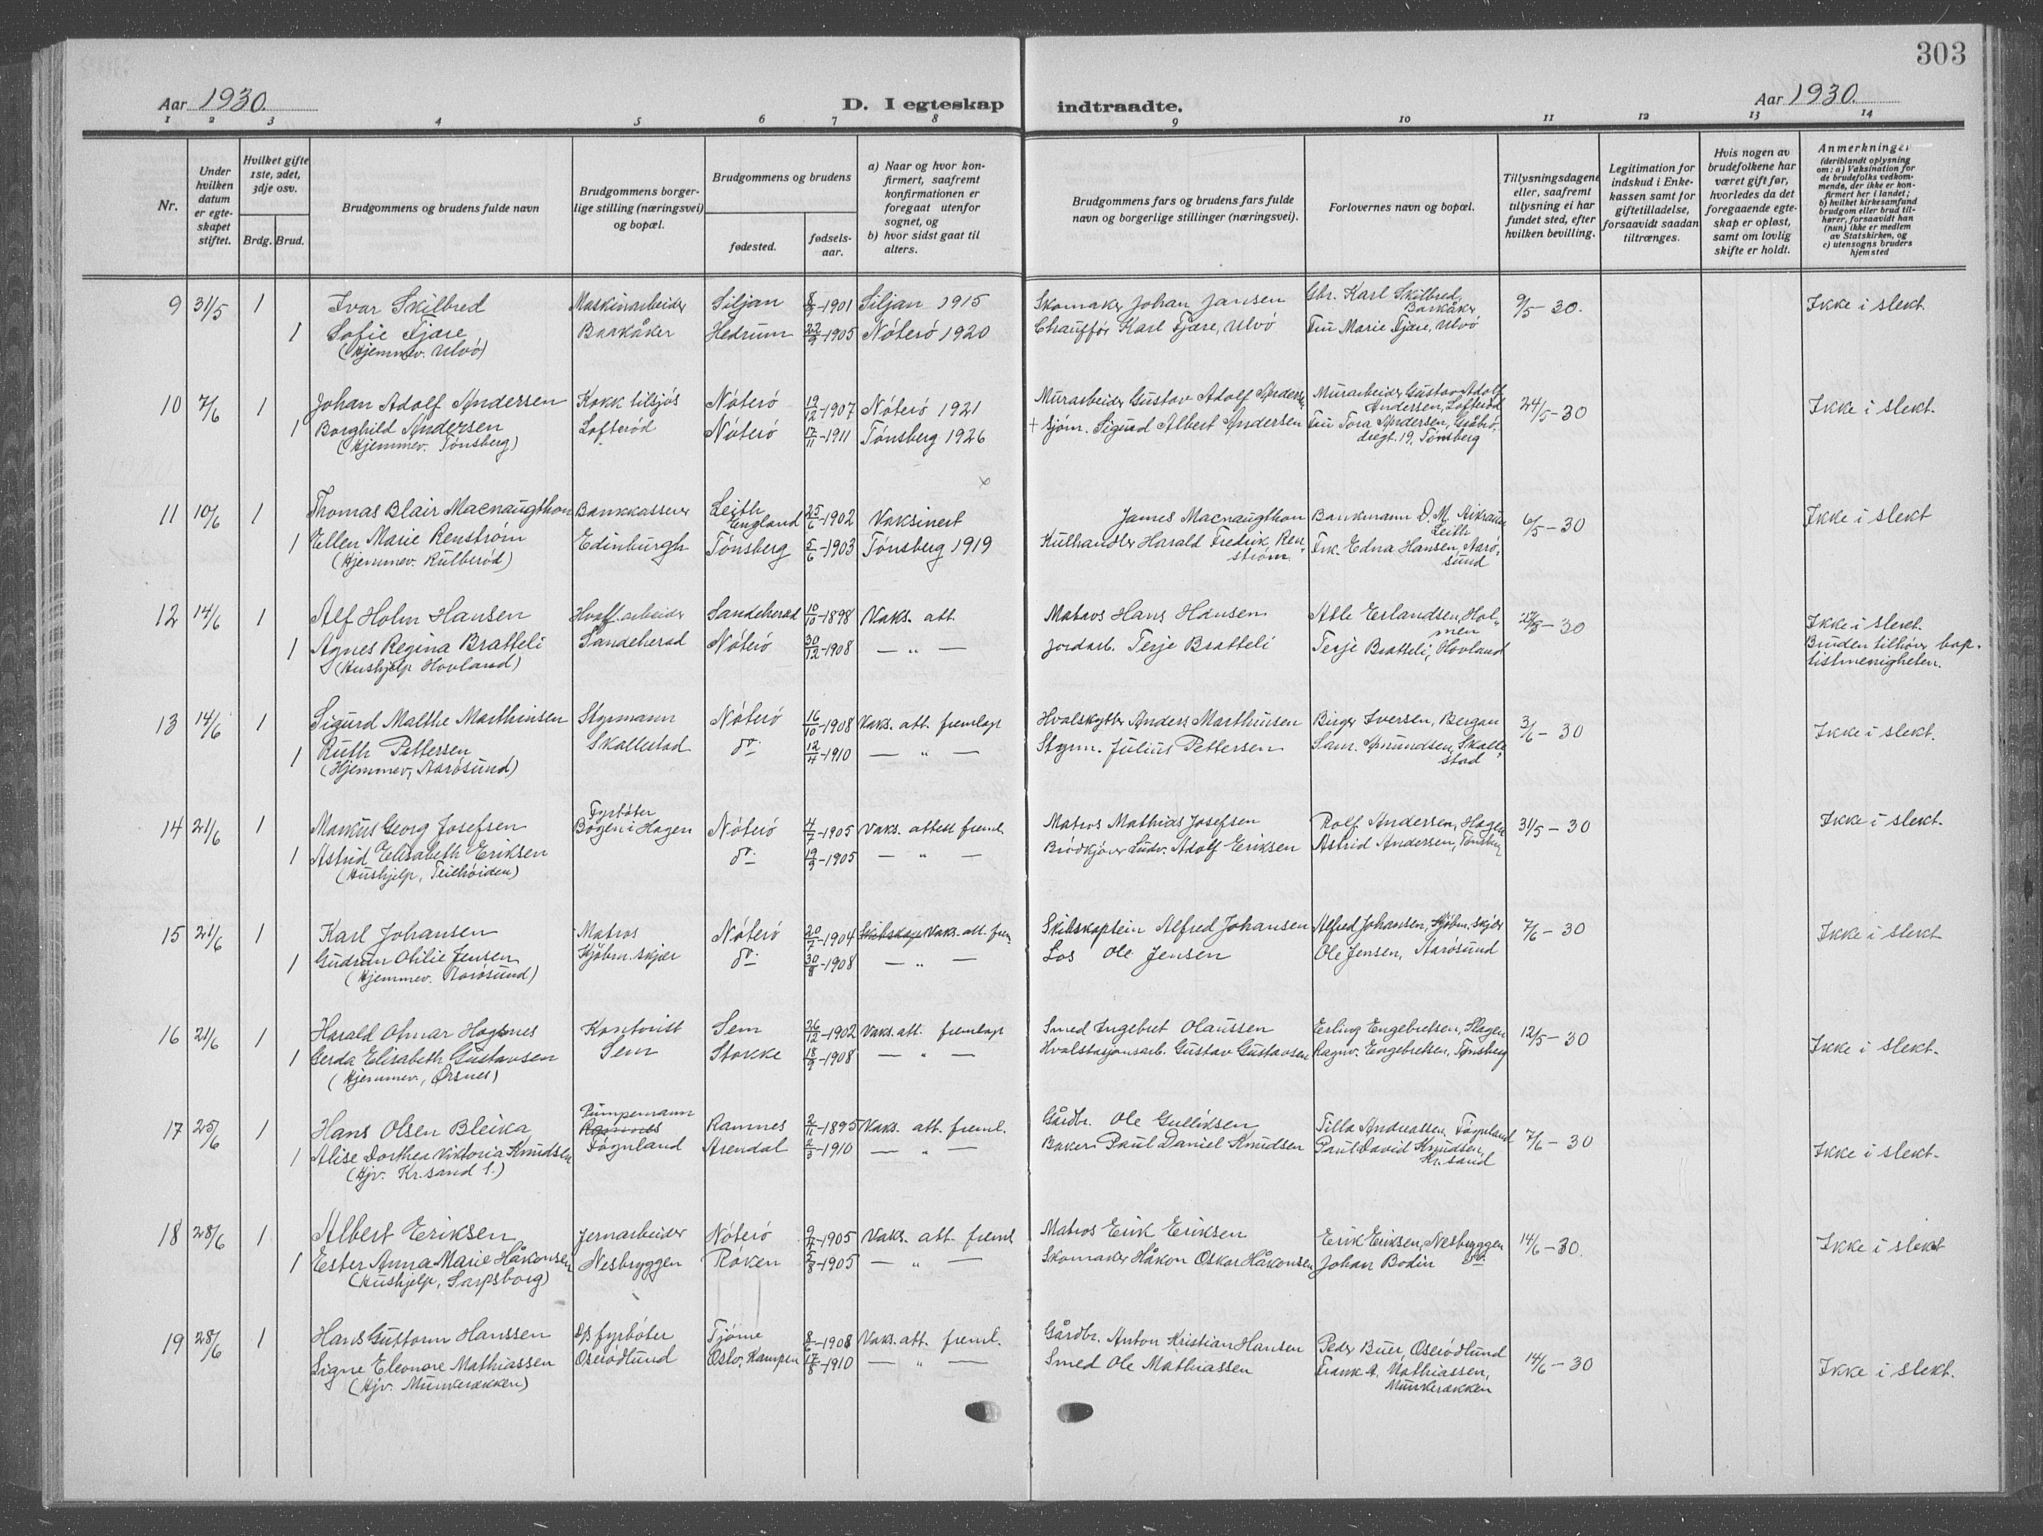 303
Aar 1930. D. I egteskap indtraadte. Aar 1930.
1 2 3 4 5 6 7 8 9 10 11 12 13 14
Nr.
Under hvilken datum er egteskapet stiftet.
Hvilket gifte 1ste, 2det, 3dje osv.
Brdg. Brud.
Brudgommens og brudens fulde navn
Brudgommens borgerlige stilling (næringsvei) og bopæl.
Brudgommens og brudens
fødested.
fødselsaar.
a) Naar og hvor konfirmert, saafremt konfirmationen er foregaat utenfor sognet, og
b) hvor sidst gaat til alters.
Brudgommens fars og brudens fars fulde navn og borgerlige stillinger (næringsvei).
Forlovernes navn og bopæl.
Tillysningsdagene eller, saafremt tillysning ei har fundet sted, efter hvilken bevilling.
Legitimation for indskud i Enkekassen samt for giftetilladelse, forsaavidt saadan tiltrænges.
Hvis nogen av brudefolkene har været gift før, hvorledes da det foregaaende egteskap er opløst, samt om lovlig skifte er holdt.
Anmerkninger
(deriblandt oplysning om: a) Vaksination for de brudefolks vedkommende, der ikke er konfirmert her i landet; b) hvilket kirkesamfund brudgom eller brud tilhører, forsaavidt han (hun) ikke er medlem av Statskirken, og c) utensogns bruders hjemsted
9 31/5 1 Ivar Skilbred Maskinarbeider Siljan 8/3-1901 Siljan 1915 Skomaker Johan Jansen Gbr. Karl Skilbred, Barkåker 9/5-30. Ikke i slekt.
1 Sofie Fjære Barkåker Hedrum 22/9-1905 Nøterø 1920 Chauffør Karl Fjære, Ulvø Fru Marie Fjære, Ulvø
(Hjemmev. Ulvø)
10 7/6 1 Johan Adolf Andersen Kokk tilsjøs Nøterø 19/12-1907 Nøterø 1921 Murarbeider Gustav Adolf Anders. Murarbeider Gustav Adolf Andersen, Lofterød 24/5-30 Ikke i slekt.
1 Borghild Andersen Lofterød Nøterø 17/11-1911 Tønsberg 1926 + sjøm. Sigurd Albert Andersen Fru Tora Andersen, Gråbrødregt. 19, Tønsberg
(Hjemmev. Tønsberg)
x
11 10/6 1 Thomas Blair Macnaugthon Bankkasserer Leith England 25/6-1902 Vaksinert James Macnaugthon Bankmann D. M. Leith 6/5-30 Ikke i slekt
1 Ellen Marie Renstrøm Edinburgh Tønsberg 5/6-1903 Tønsberg 1919 Kulhandler Harald Fredrik Renstrøm. Frk. Edna Hansen, Aarøsund
(Hjemmev. Kulberød)
12 14/6 1 Alf Holm Hansen Hvalf.arbeider Sandeherad 10/10-1898 Vaks. att. Matros Hans Hansen Atle Erlandsen, Holmen -30 Ikke i slekt.
1 Agnes Regina Bratteli Sandeherad Nøterø 30/12-1908 — „ — Jordarb. Terje Bratteli Terje Bratteli, Hovland Bruden tilhører baptistmenigheten.
(Hushjelp Hovland)
13 14/6 1 Sigurd Malthe Marthinsen Styrmann Nøterø 16/10-1908 Vaks. att. fremlagt Hvalskytter Anders Marthinsen Birger Iversen, Bergan 3/6-30 Ikke i slekt.
1 Ruth Pettersen Skallestad do. 12/4-1910 — „ — Styrm. Julius Pettersen Sam. Amundsen, Skallestad
(Hjemmev, Aarøsund)
14 21/6 1 Markus Georg Josefsen Fyrbøter Bøgen i Hagen Nøterø 4/7-1905 Vaks. attest freml. Matros Mathias Josefsen Rolf Andersen, Hagen 31/5-30 Ikke i slekt.
1 Astrid Elisabeth Eriksen do. 19/9-1905 — „ — Brødkjører Ludv. Adolf Eriksen Astrid Andersen, Tønsberg
(Hushjelp, Teiehøiden)
15 21/6 1 Karl Johansen Matros Nøterø 20/2-1904 Vaks. att. frem. Skibskaptein Alfred Johansen Alfred Johansen, Kjøbm.skjær 7/6-30 Ikke i slekt
1 Gudrun Otilie Jensen Kjøbm.skjær do. 30/8-1908 — „ — Los Ole Jensen Ole Jensen, Aarøsund
(Hjemmev. Aarøsund)
16 21/6 1 Harald Otmar Hogsnes Kontorist Sem 26/12-1902 Vaks. att. fremlagt Smed Ingebret Olaussen Erling Engebretsen, Slagen 12/5-30 Ikke i slekt.
1 Gerda Elisabeth Gustavsen Sem Stokke 18/9-1908 — „ — Hvalstasjonsarb. Gustav Gustavsen Ragnv. Engebretsen, Tønsberg
(Hjemmev, Ørsnes)
17 25/6 1 Hans Olsen Bleika Pumpemann Ramnes Ramnes 2/11-1895 Vaks. att. freml. Gårdbr. Ole Gulliksen Tilla Andreassen, Føynland 7/6-30 Ikke i slekt.
1 Alise Dorthea Viktoria Knudsen Føynland Arendal 2/3-1910 — „ — Baker Paul Daniel Knudsen Paul David Knudsen, Kr.sand
(Hjv. Kr.sand S.)
18 28/6 1 Albert Eriksen Jernarbeider Nøterø 9/4-1905 Vaks. att. freml. Matros Erik Eriksen Erik Eriksen, Nesbryggen 14/6-30. Ikke i slekt
1 Ester Anna Marie Håkonsen Nesbryggen Røken 5/8-1905 — „ — Skomaker Håkon Oskar Håkonsen Johan Bodin do.
(Hushjelp, Sarpsborg)
19 28/6 1 Hans Guttorm Hanssen D/S fyrbøter Tjøme 8/6-1908 Vaks. att. freml. Gårdbr. Anton Kristian Hansen Peder Buer, Oserødlund 14/6-30 Ikke i slekt.
Signe Eleonore Mathiassen Oserødlund Oslo, Kampen 17/8-1910 — „ — Smed Ole Mathiassen Frank A. Mathiassen, Munkerækken
(Hjv. Munkerækken)